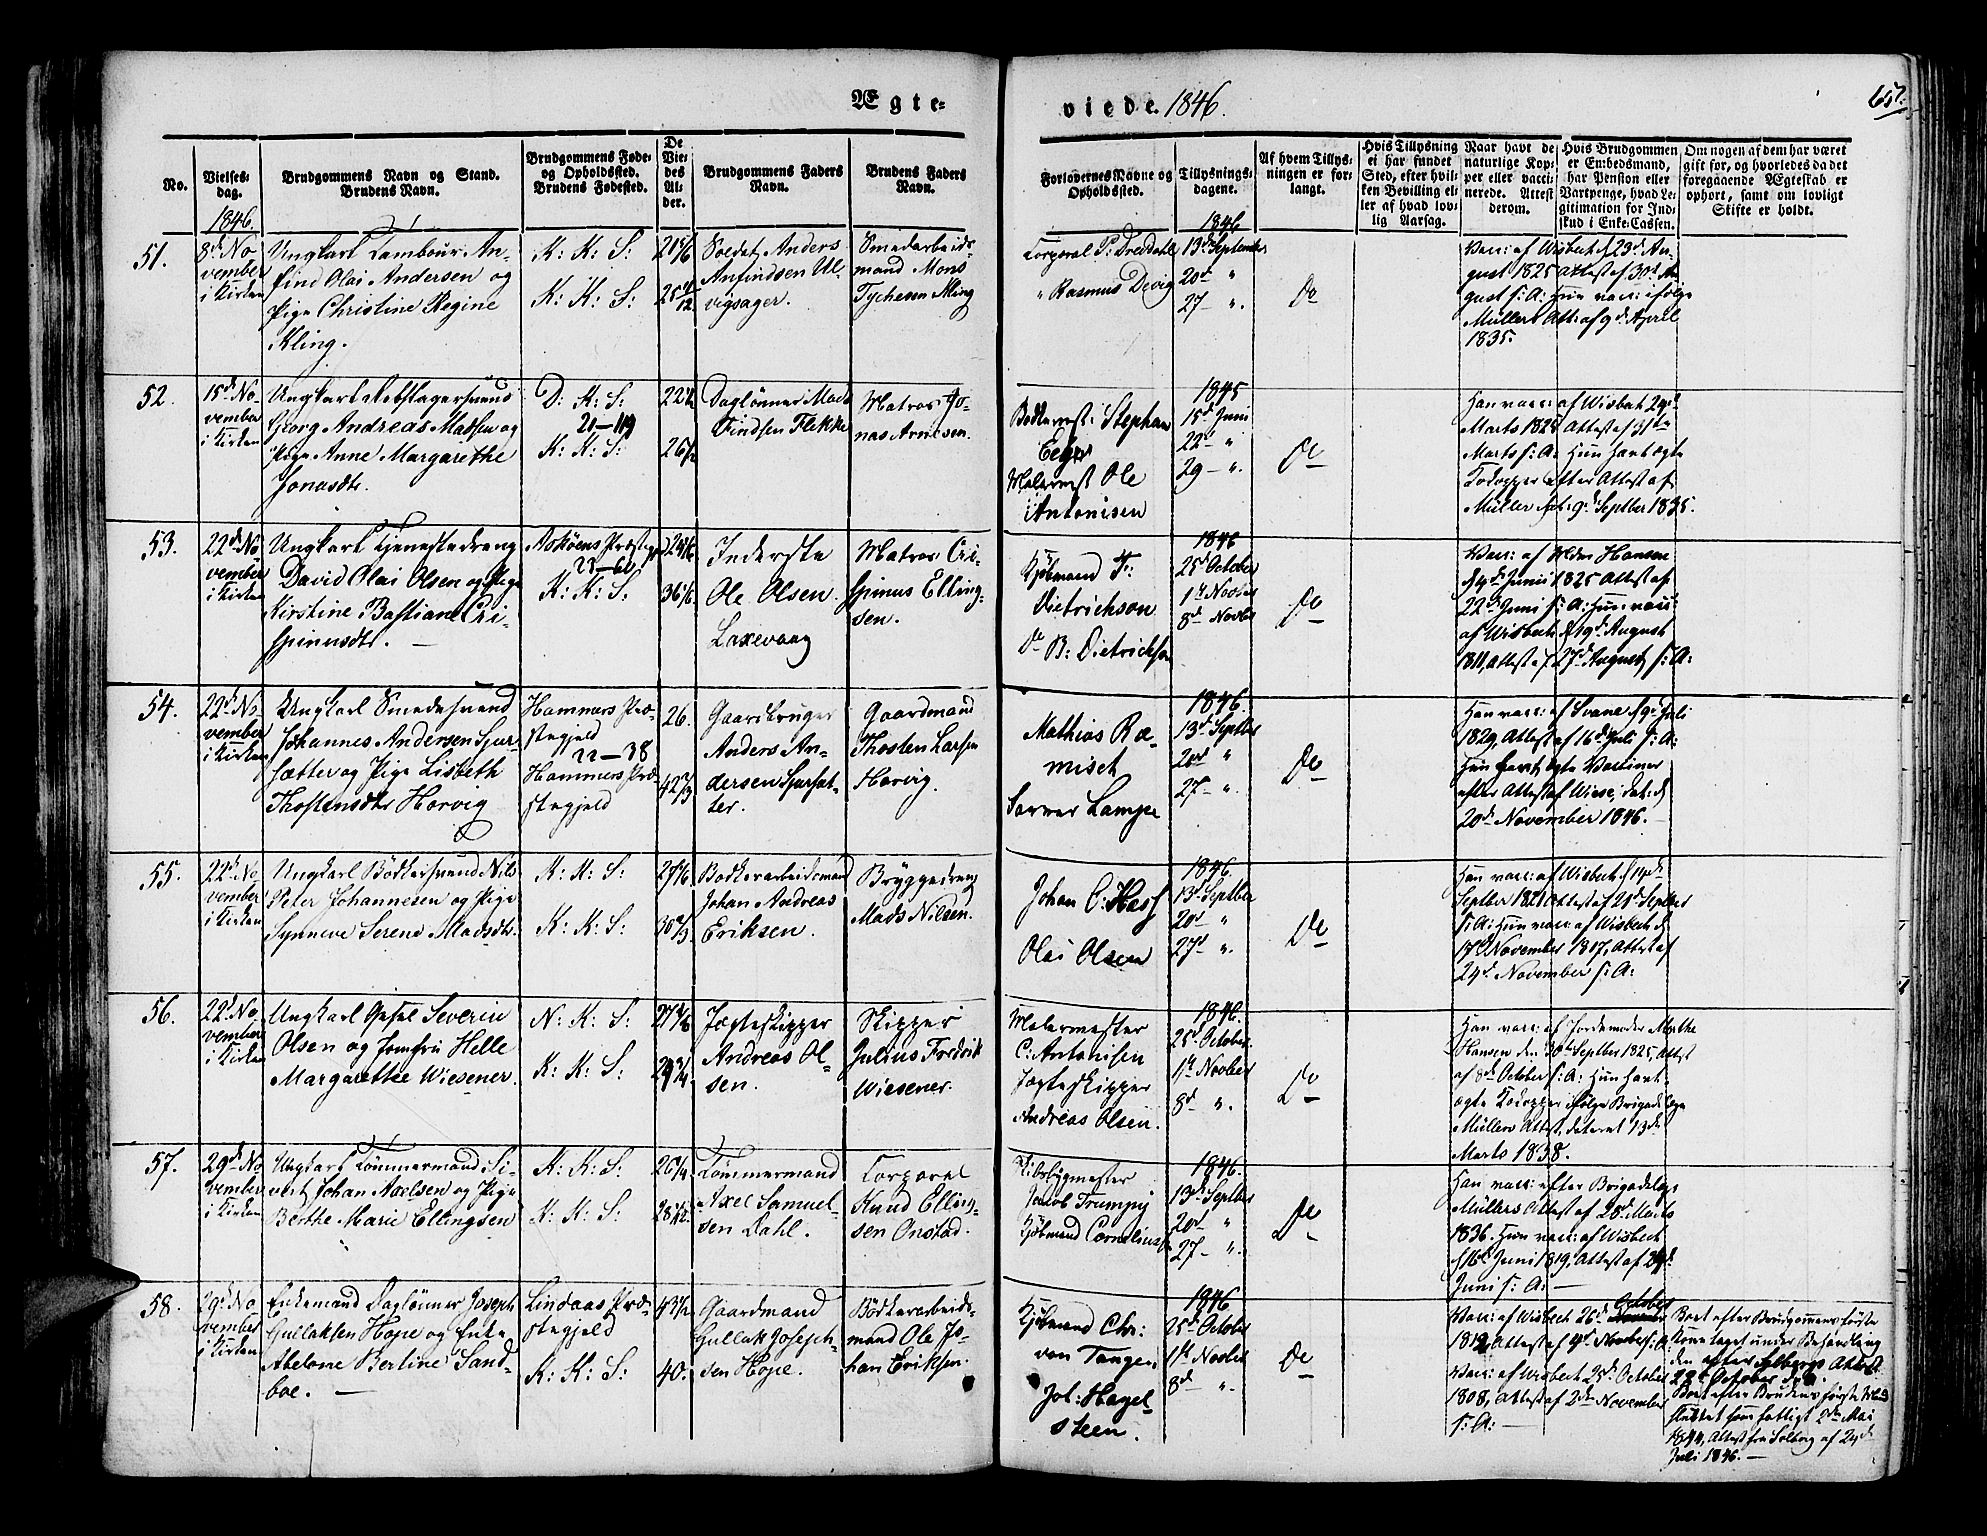 Ægte-
viede. 1846.
65.
No.
Vielses-
dag.
Brudgommens Navn og Stand.
Brudens Navn.
Brudgommens Føde-
og Opholdssted.
Brudens Fødested.
De
Vie-
des
Al-
der.
Brudgommens Faders
Navn.
Brudens Faders
Navn.
Forlovernes Navne og
Opholdssted.
Tillysnings-
dagene.
Af hvem Tillys-
ningen er for-
langt.
Hvis Tillysning
ei har fundet
Sted, efter hvil-
ken Bevilling el-
ler af hvad lov-
lig Aarsag.
Naar havt de
naturlige Kop-
per eller vacci-
nerede. Attest
derom.
Hvis Brudgommen
er Embedsmand,
har Pension eller
Vartpenge, hvad Le-
gitimation for Ind-
skud i Enke-Cassen.
Om nogen af dem har været
gift før, og hvorledes da det
foregaaende Ægteskab er
ophørt, samt om lovligt
Skifte er holdt.
1846.
51.
8d No-
vember
i Kirken
Ungkarl Tambour An-
find Olai Andersen og
Pige Christine Regine
Kling.
K: K: S:
K: K: S:
Soldat Anders
Anfindsen Ul-
vigsager.
Smedarbeids-
mand Mons
Tychesen Kling
Corporal P: Dredahl
" Rasmus Devig
1846
13d September
20d "
27 - ".
Do
Vacc: af Wisbech d 23d Au-
gust 1825 Attest af 30t Au-
gust s: A: Hun vacc: ifølge
Müllers Att: af 9d April
1835.
52.
15d No-
vember
i Kirken
Ungkarl Rebslagersvend
Georg Andreas Madsen og
Pige Anne Margarethe
Jonasdtr.
D: K: S:
21-119
K: K: S:
Daglønner Mads
Findsen Flekke
Matros Jo-
nas Arnesen.
Bødkermst: Stephan
Malermst Ole
Antonisen
1845
15d Juni
22 - "
29 - ".
Do
Han vacc: af Wisbech 24d
Marts 1825 Attest af 31te
Marts s: A: Hun havt ægte
Kokopper efter Attest af
Müller dat: 9d Septber 1835.
53.
22d No-
vember
i Kirken
Ungkarl Tjenestedreng
David Olai Olsen og Pige
Kirstine Bastiane Cri-
spinusdtr. —
Askøens Præstegj:
22-60
K: K: S:
Inderste
Ole Olsen
Laxevaag
Matros Cri-
spinus Elling-
sen.
Kjøbmand Fr:
Dietrichson
Do B: Dietrichson
1846
25d October
1st Novber
8d Novber
Do
Vacc: af Mdm Hansen
d 4d Junii 1825 Attest af
22d Juni s: A: Hun vacc:
af Wisbech d 19d August
1811, Attest af 27d August s: A:
54.
22d No-
vember
i Kirken
Ungkarl Smedesvend
Johannes Andersen Sjur-
sætter og Pige Lisbeth
Thostensdtr Horvig
Hammers Præ-
stegjeld
22-38
Hammers Præ-
stegjeld
26.
42 2/3
Gaardbruger
Anders An-
dersen Sjursæt-
ter.
Gaardmand
Thosten Larsen
Horvig.
Mathias Ra-
misch
Lampe
1846.
13d Septber
20d "
27 - ".
Do
Han vacc: af Svane d 9d Juli
1829, Attest af 16d Juli s: A:
Hun havt ægte Vacciner
efter Attest af Wiese, dat: d
20d November 1846. —
55.
22d No-
vember
i Kirken
Ungkarl Bødkersvend Nils
Peter Johannesen og Pige
Synneve Serene Madsdtr.
K: K: S:
K: K: S:
Bødkerarbeidsmand
Johan Andreas
Eriksen.
Bryggedreng
Mads Nilsen.
Johan C: Hass
Olai Olsen
1846.
13d Septber
20d "
27d ".
Do
Han vacc: af Wisbech d 14d
Septber 1821 Attest af 21d Septber
s: A: Hun vacc: af Wisbech d
17d November 1817, Attest af
24d November s: A:
56.
22d No-
vember
i Kirken
Ungkarl Severin
Olsen og Jomfru Helle
Margarethe Wiesener.
N: K: S:
K: K: S:
Jægteskipper
Andreas Ol-
sen.
Skipper
Julius Fredrik
Wiesener.
Malermester
C: Antonisen
Jægteskipper
Andreas Olsen.
1846.
25d October
1st Novber
8d ".
Do
Han vacc: af Jordemoder Mrthe
Hansen den 30d Septber 1825, Attest
af 8d October s: A: Hun havt
ægte Kokopper ifølge Brigadelæge
Müllers Attest, dateret 13de
Marts 1838.
57.
29d No-
vember
i Kirken
Ungkarl Tømmermand Si-
vert Johan Axelsen og Pige
Berthe Marie Ellingsen
K: K: S:
K: K: S:
Tømmermand
Axel Samuel-
sen Dahl.
Corporal
Knud Elling-
sen Onstad.
Skibsbygmester
Jacob Trumpy
Kjøbmand Corneliussen
1846.
13d Septber
20d "
27 - ".
Do
Han vacc: efter Brigadelæge
Müllers Attest af 28d Marts
1836. Hun vacc: af Wisbech
d 16d Juni 1819, Attest af 24d
Juni s: A: —
58.
29d No-
vember
i Kirken
Enkemand Dagløner Joseph
Gullaksen Hope og Enke
Abelone Bertine Sand-
boe. —
Lindaas Præ-
stegjeld
K: K: S:
43 1/2
40.
Gaardmand
Gullak Joseph-
sen Hope.
Bødkerarbeids-
mand Ole Jo-
han Eriksen.
Kjøbmand Chr:
von Tangen
Joh: Hagel-
steen.
1846
25d October
1st Novber
8d ".
Do
Vacc: af Wisbech 26d October
1812, Attest af 4d Novber s: A:
Vacc: af Wisbech 25d October
1808, Attest af 2den November
s: A: —
Boet efter Brudgommens første
Kone taget under Behandling
den efter Solbergs Attest
22d October d. A.
Boet efter Brudens første Mand
sluttet som fattigt 2den Mai
1844, Attest fra Solberg af 24d
Juli 1846. —